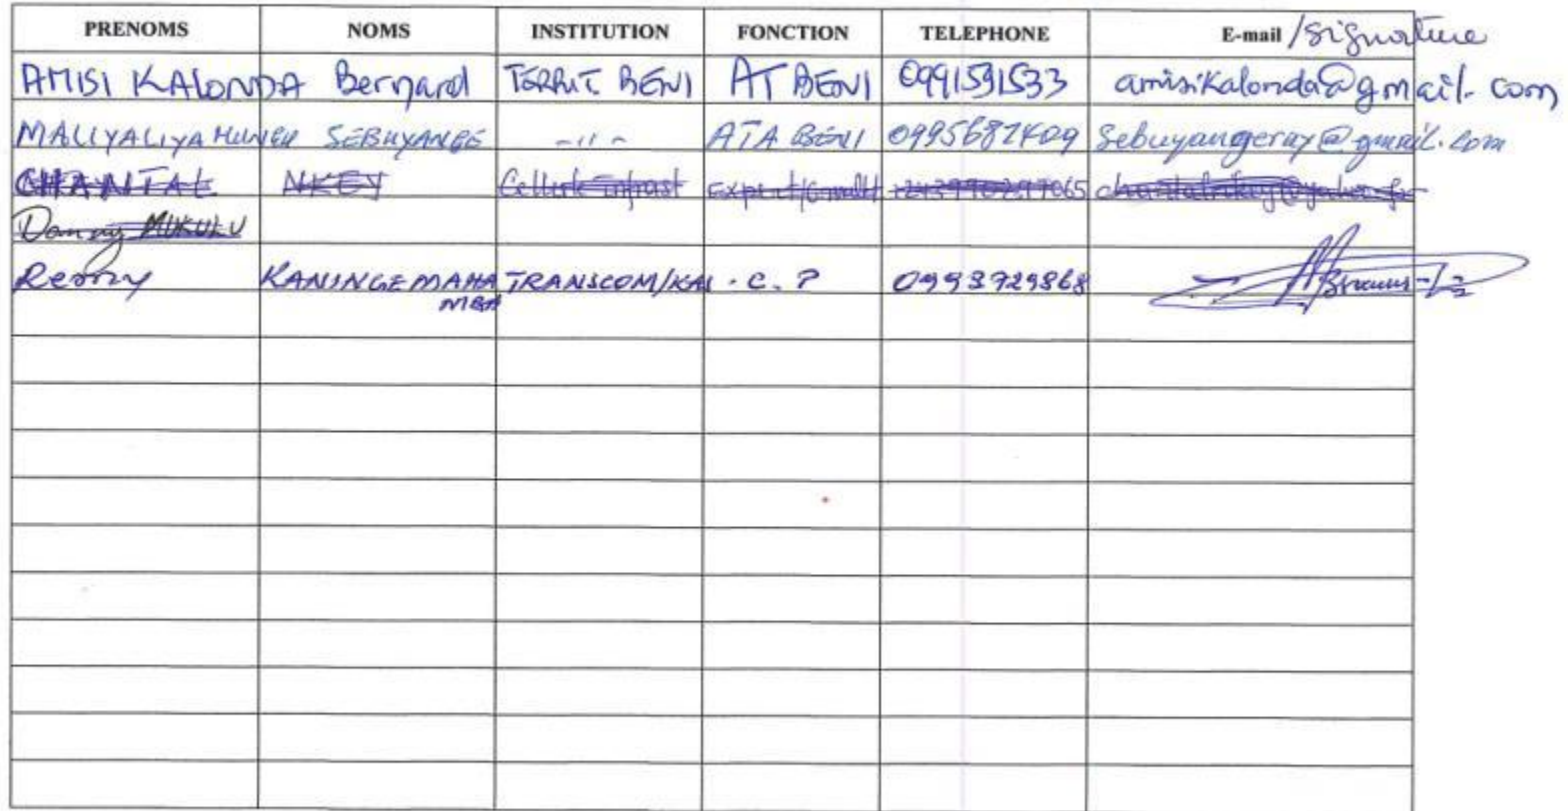 PRENOMS NOMS INSTITUTION FONCTION TELEPHONE E-mail /Signature
AMISI KALONDA Bernard TERRIT BENI AT BENI 0991591533 amisikalonda@gmail.com
MALIYALIYA SEBUYANGE -11- ATA BENI 0995687409 Sebuyangeray@gmail.com
CHANTAL NKEY Cellule infrast
Danny MUKULU
Remy KANINGE MAHA TRANSCOM/KAL . C. P 0993729868
MBA